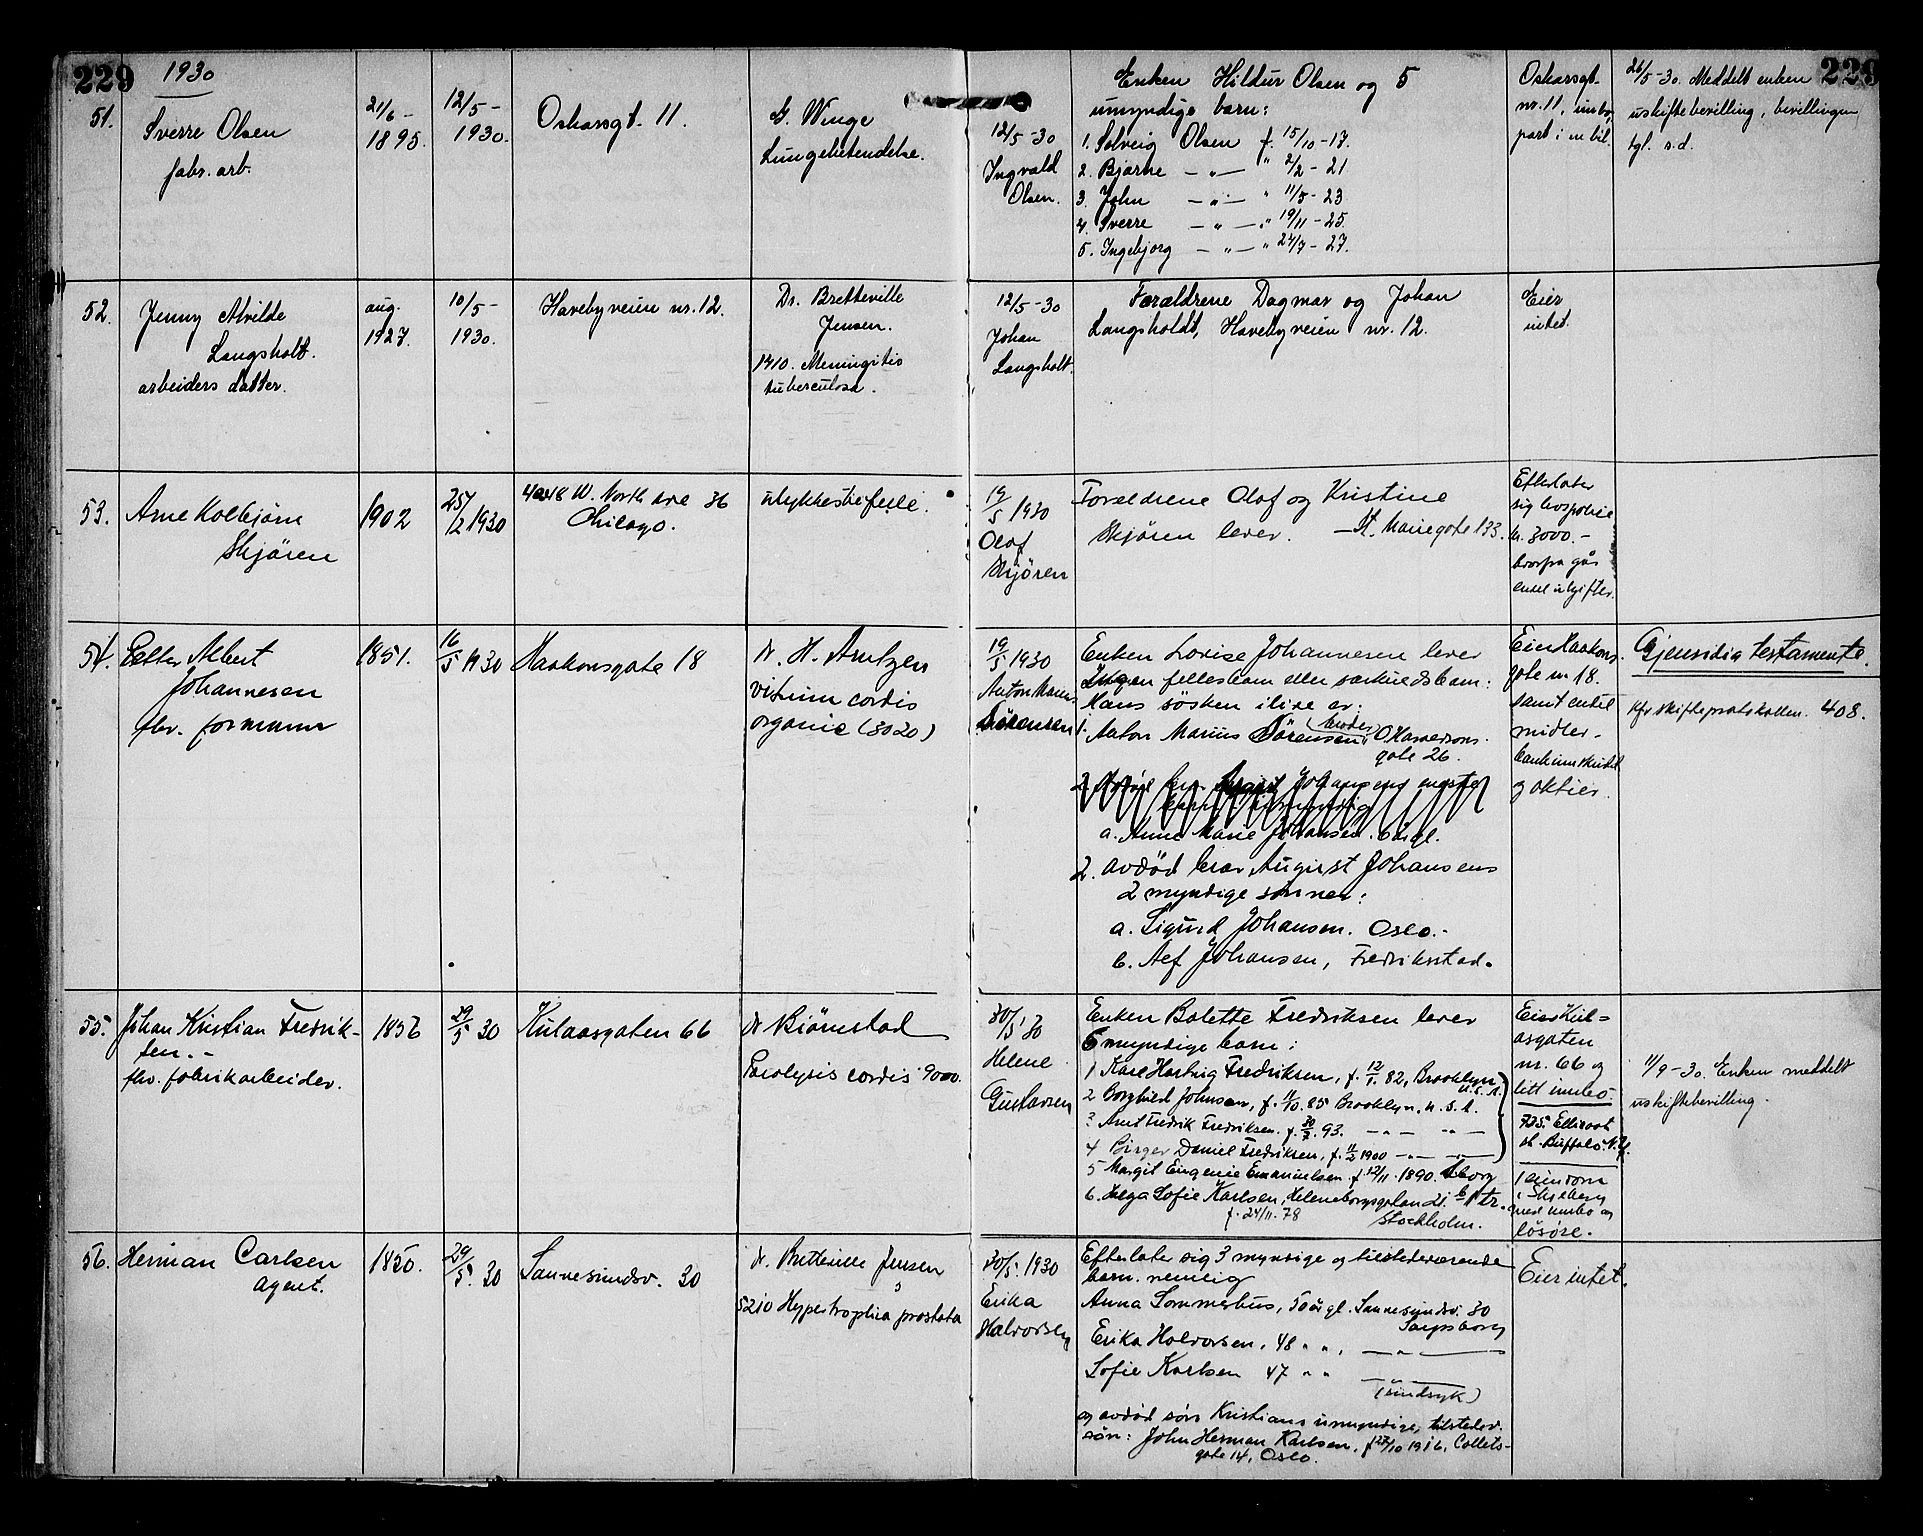 229
1930
229
51.
Sverre Olsen
fabr. arb.
21/6 -
1895.
12/5 -
1930.
Oskarsgt. 11.
G. Winge
Lungebetendelse.
12/5 -30
Ingvald
Olsen.
Enken Hildur Olsen og 5
umyndige barn:
1. Solveig Olsen f. 15/10 - 17.
2. Bjarne — " — " 2/2 - 21
3. John — " — " 11/5 - 23
4. Sverre — " — " 19/11 - 25.
5. Ingebjorg — " — " 24/7 - 27.
Oskarsgt.
nr. 11, innbo,
part i en bil.
26/5 -30. Meddelt enken
uskiftebevilling, bevillingen
tgl. s.d.
52.
Jenny Alvilde
Langsholt.
arbeiders datter.
aug.
1927.
10/5 -
1930.
Havebyveien nr. 12.
Dr. Bretteville
Jensen.
1410. Meningitis
tuberculosa.
12/5 -30
Johan
Langsholt.
Forældrene Dagmar og Johan
Langsholdt, Havebyveien nr. 12.
Eier
intet.
53.
Arne Kolbjörn
Skjören
1902
25/2 1930
4048 W. North ave 36
Chicago.
ulykkestilfelle.
19/5 1930
Olaf
Skjören
Foreldrene Olaf og Kristine
Skjören lever. — St. Mariegate 133.
Efterlater
sig livspolise
kr. 3000.-
hvorfra går
endel utgifter.
54.
Petter Albert
Johannesen
fhv. formann
1851.
16/5 1930
Haakonsgate 18
dr. H. Arntzen
vitium cordis
organic (3020)
19/5 1930
Anton Marius
Sörensen
Enken Lovise Johannesen lever
Ingen fellesbarn eller særkuldsbarn:
Hans sösken ilive er:
1. Anton Marius Sörensen, (broder) O Haraldsons
gate 26.
a. Anne Marie Johansen.
2. avdöd bror August Johansens
2 myndige sönner:
a. Sigurd Johansen. Oslo.-
b. Alf Johansen, Fredrikstad.
Eier Haakons
gate nr 18.
samt endel
midler -
bankinnskudd
og aktier.
Gjensidig testamente.
kfr skifteprotokollen. 408.
55.
Johan Kristian Fredrik-
sen. -
fhv. fabrikarbeider.
1856
29/5 30
Kulaasgaten 66
dr Björnstad
Paralysis cordis 9000.
30/5 30
Helene
Gustavsen
Enken Bolette Fredriksen lever
6 myndige barn:
1 Karl Hartvig Fredriksen, f. 12/1. 82, Brooklyn
U.S.A.
2 Borghild Johnsen, f. 11/10. 85 Brooklyn. U.S.A.
3 Arnt Fredrik Fredriksen. f. 30/7. 93. — " — " —
4 Birger Daniel Fredriksen, f. 11/2 1900 — " — " —
5 Margit Eugenie Emanuelsen f. 12/11. 1890.
6. Helga Sofie Karlsen, Heleneborgsgatan 21 b 1 tr.
f. 24/11. 78 Stockholm.
Eier Kul=
asgaten
nr. 66 og
litt innbo
725. Ellicott
st. Buffalo N.Y.
1 eiendom
i Skjeberg
med innbo og
lösöre.
11/9 -30. Enken meddelt
uskiftebevilling.
56.
Herman Carlsen
agent.
1850.
29/5. 30
Sannesundsv. 30
dr. Bretteville Jensen
5210 Hypertrophia prostata
30/5. 1930
Erika
Halvorsen
Efterlater sig 3 myndige og tilstedeværende
barn. nemlig
Anna Sommerhus, 50 år gl. Sannesundsv. 30
Sarpsborg
Erika Halvorsen, 48 " " , — " —
Sofie Karlsen 47 " "
(sindsyk)
og avdöd sön Kristians umyndige, tilstedev.
sön: John Herman Karlsen, f 27/10 1916, Collets-
gate 14, Oslo.
Eier intet.